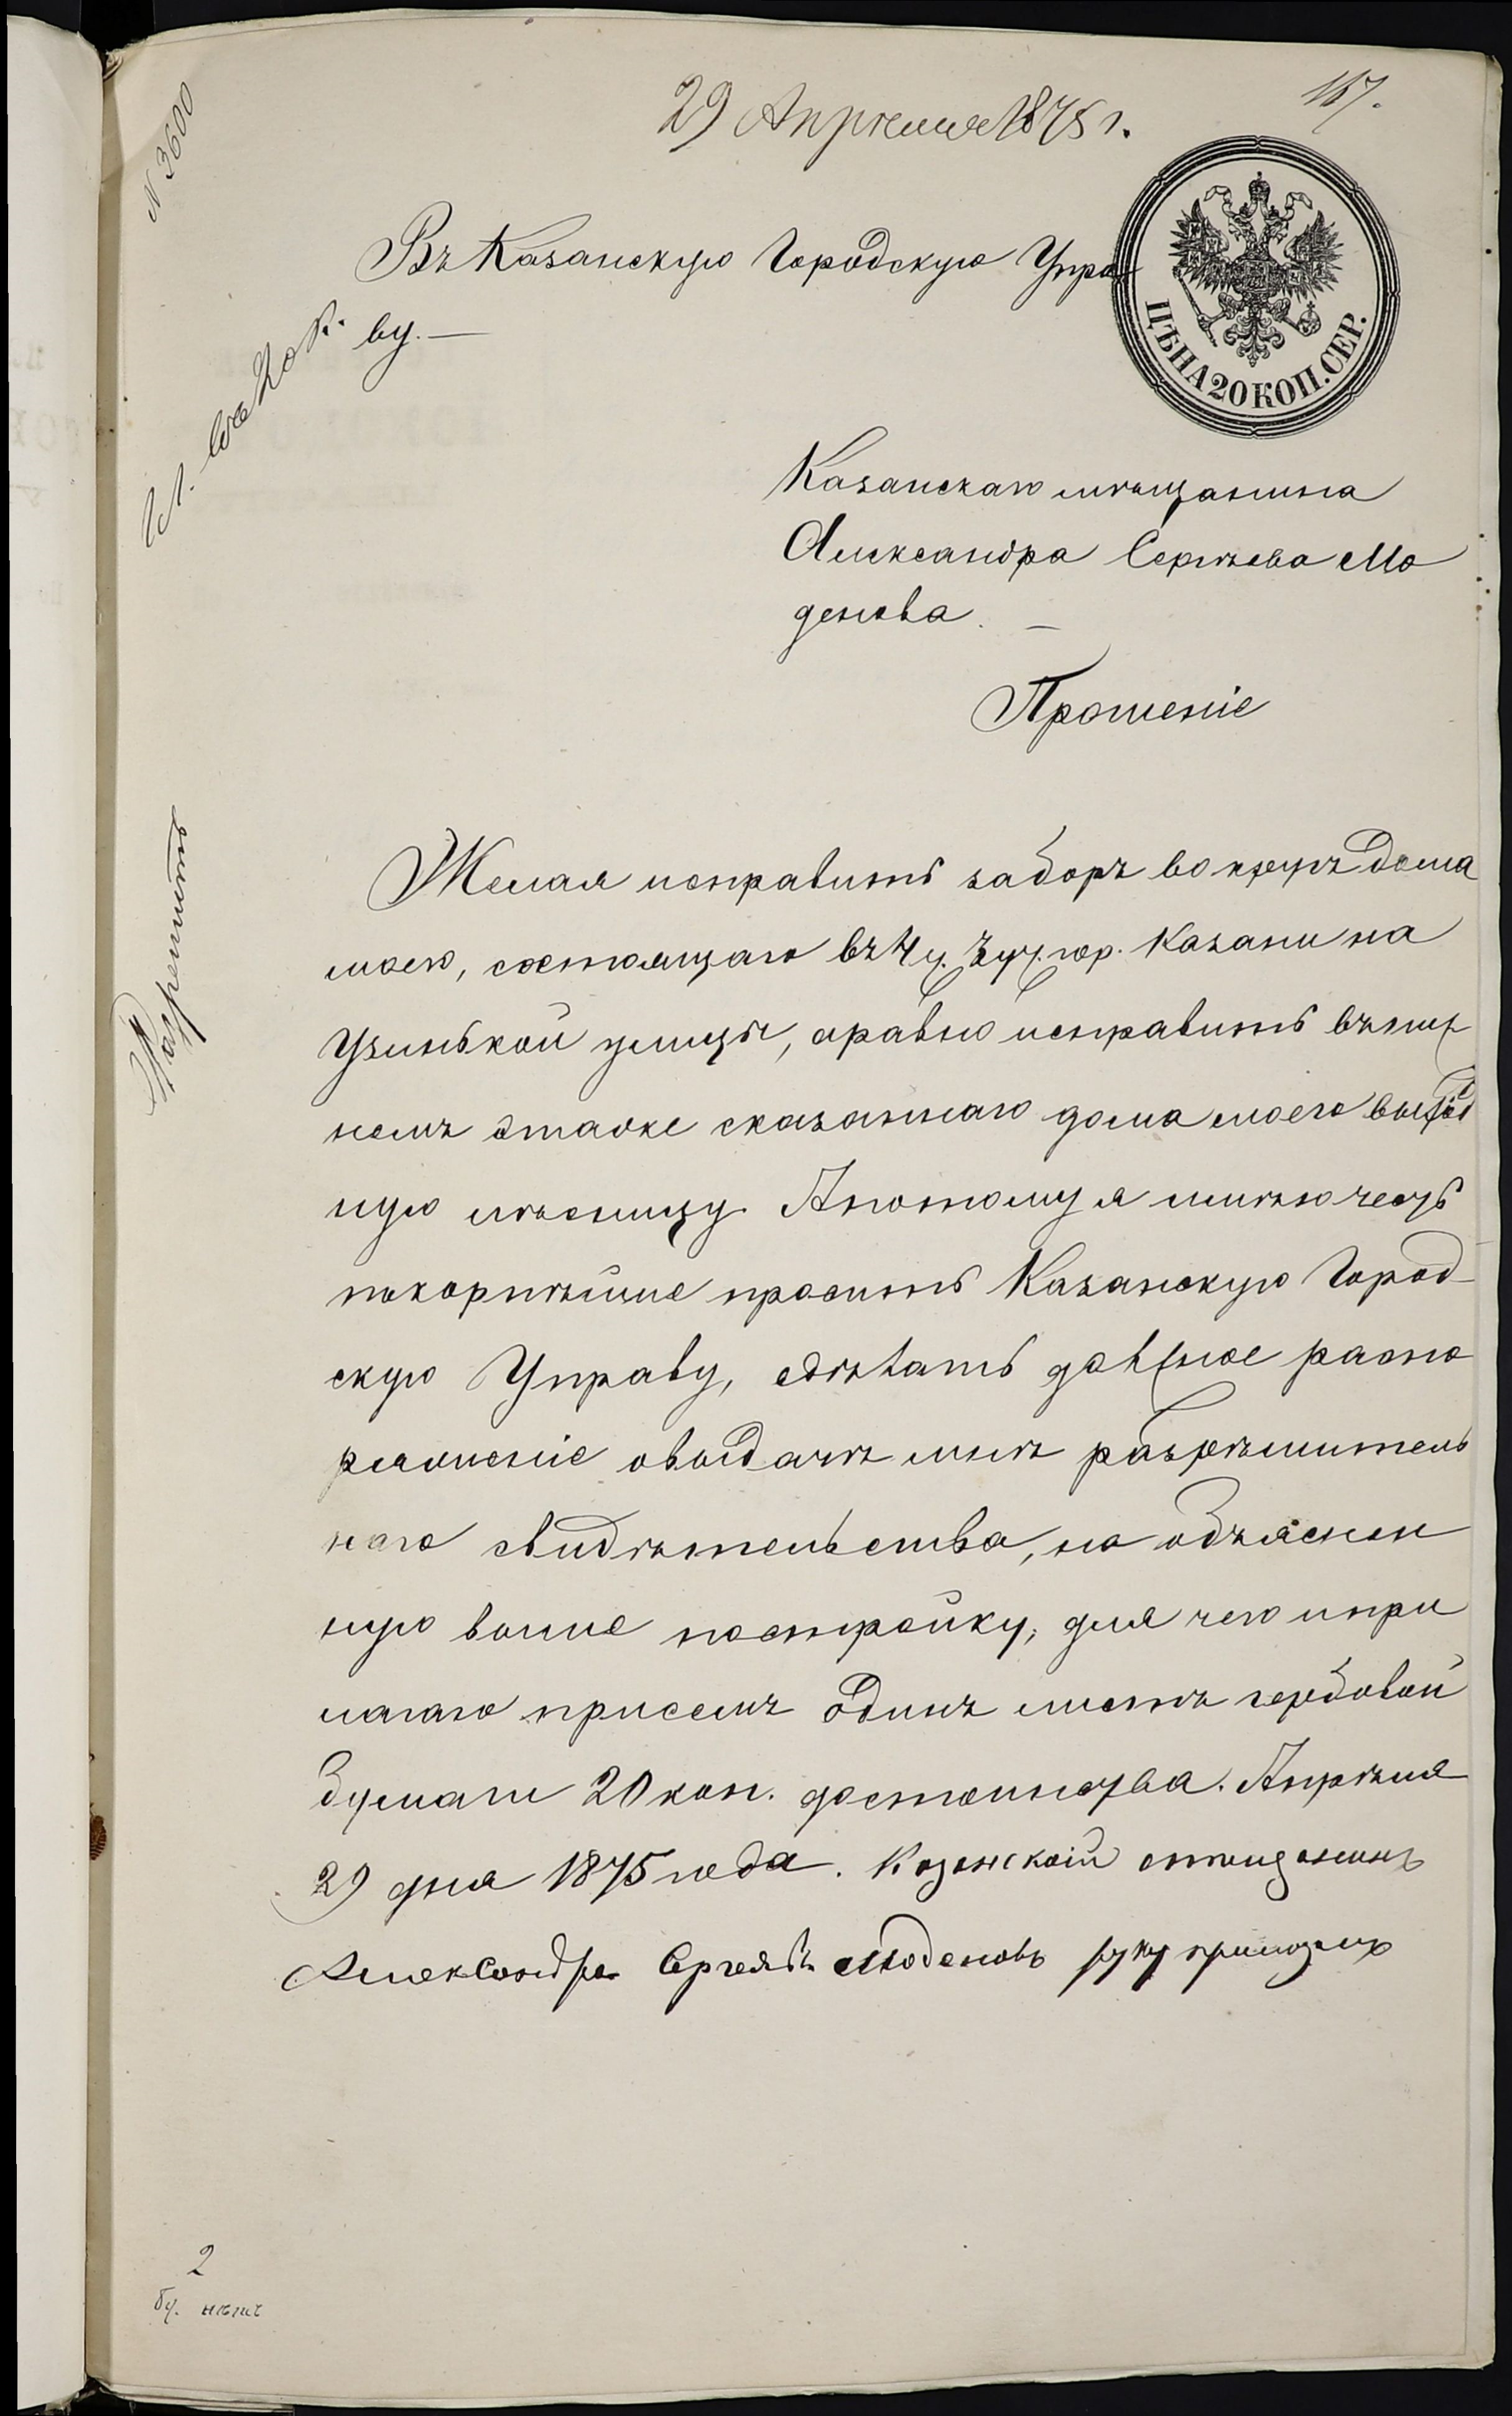 167.
29 Апрѣля 1875 г.
N 3600
Въ Казанскую Городскую Упра
ву.—
ЦѢНА 20 КОП. СЕР.
Казанскаго мѣщанина
Александра Сергѣева Мо
денова. —
Прошеніе
Разрешить
Желая исправить заборъ вокругъ дома
моего, состоящаго въ 4 ч. гор. Казани на
Узинькой улицѣ, аравно исправить въ ниж
немъ этаже сказаннаго дома моего выход
ную лѣсницу. Апотому я имѣю честь
покорнѣйше просить Казанскую Город-
скую Управу, сдѣлать должное распо
ряженіе овыдачѣ мнѣ разрѣшитель
наго свидѣтельства, на объяснен
ную выше постройку, для чего и при
лагаю присемъ одинъ листъ гербовой
бумаги 20 коп. достоинства. Апрѣля
29 дня 1875 года. Казанскай мещанинъ
Александра Сергеявъ Моденовъ руку приложилъ
2